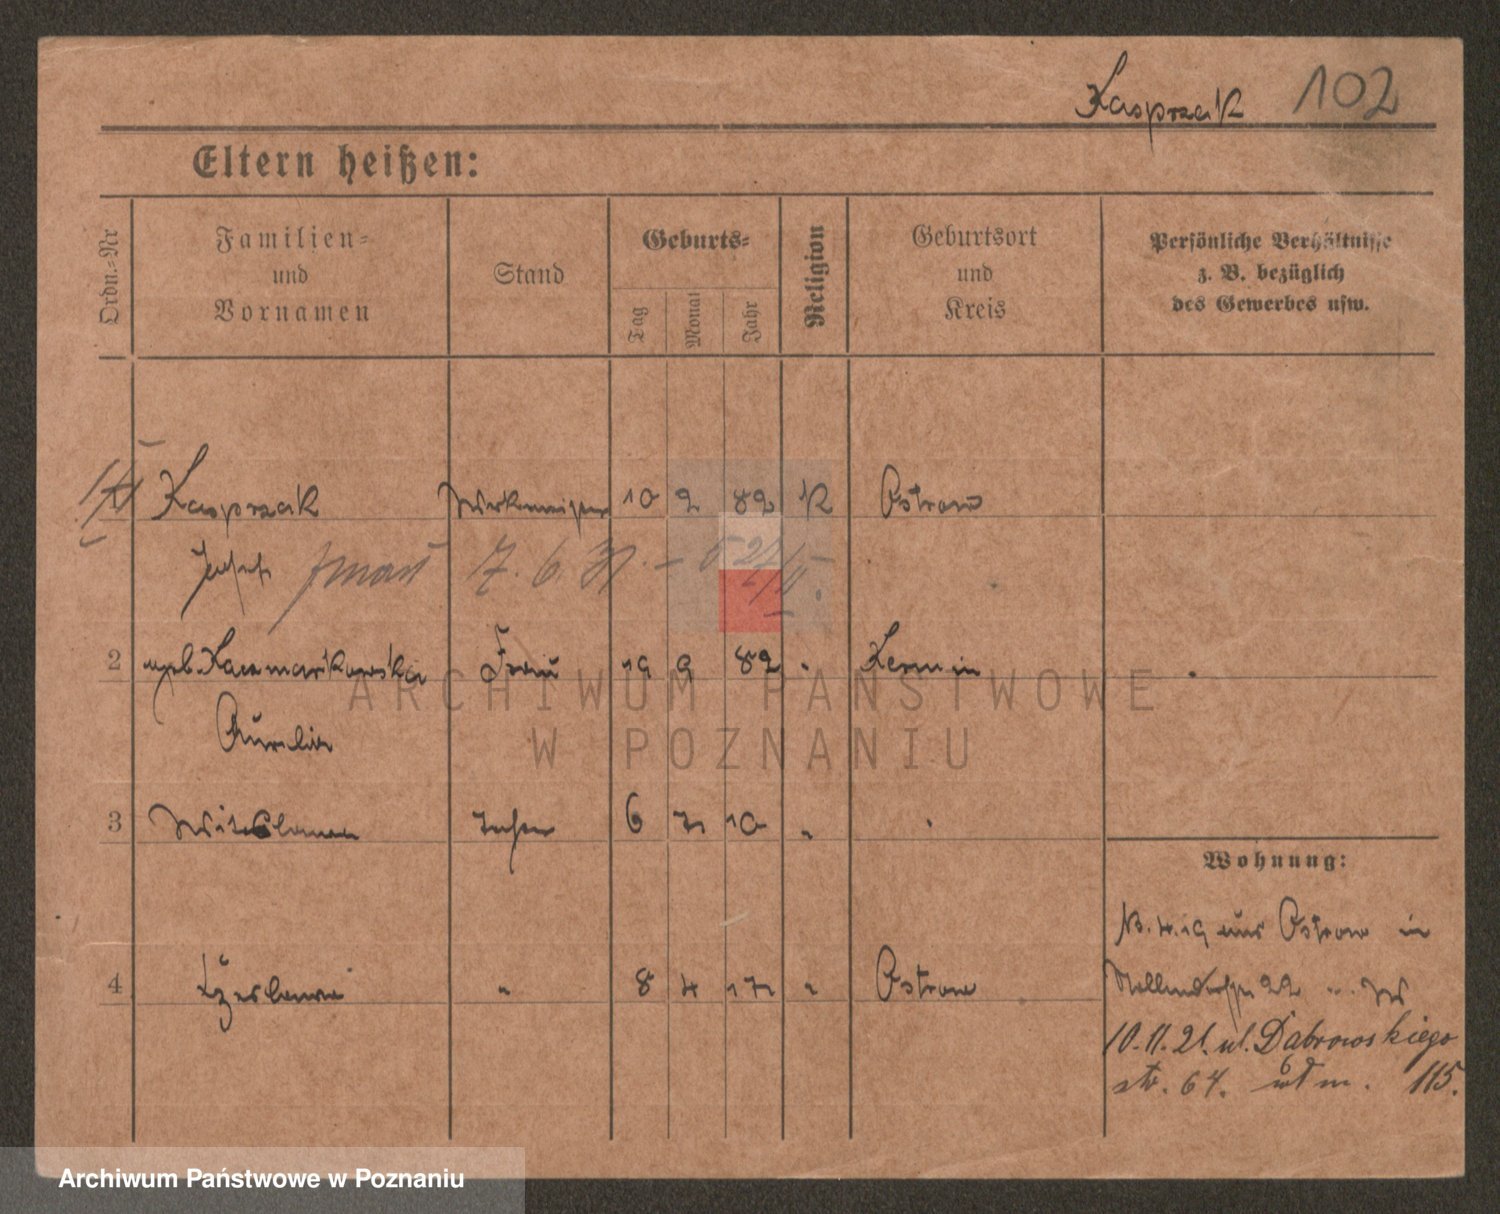 Kasprzak 102
Eltern heißen:
Ordn.=Nr
Familien= und Vornamen
Stand
Geburts=
Tag
Monat
Jahr
Religion
Geburtsort und Kreis
Persönliche Verhältnisse z. B. bezüglich des Gewerbes usw.
Kasprzak 10 2 82 K Ostrow
Josef 7. 6. 31.
2 geb. Kaczmarkowska Frau 19 9 82 " Lewin
Aurelia
3 6 10 "
Wohnung:
aus Ostrow in
4 " 8 4 17 " Ostrow
22
10.11.21. ul. Dabrowskiego
str. 64. m. 115.
ARCHIWUM PAŃSTWOWE
W POZNANIU
Archiwum Państwowe w Poznaniu